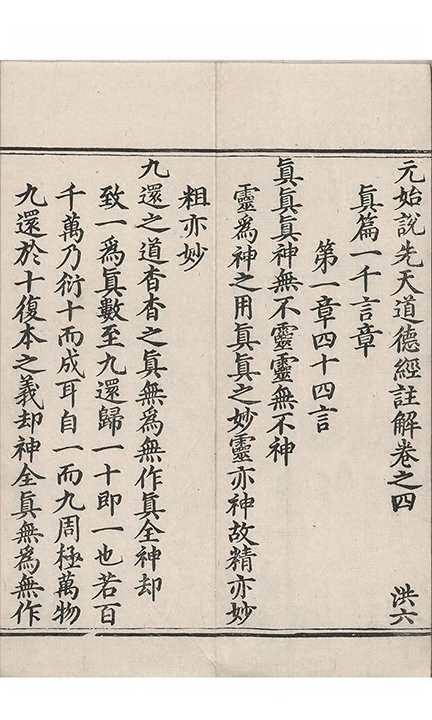 元始說先天道德經註解卷之四 洪六
眞篇一千言章
第一章四十四言
眞眞眞神無不靈靈無不神
靈爲神之用眞眞之妙靈亦神故精亦妙
粗亦妙
九還之道杳杳之眞無爲無作眞全神却
致一爲眞數至九還歸一十即一也若百
千萬乃衍十而成耳自一而九周極萬物
九還於十復本之義却神全眞無爲無作